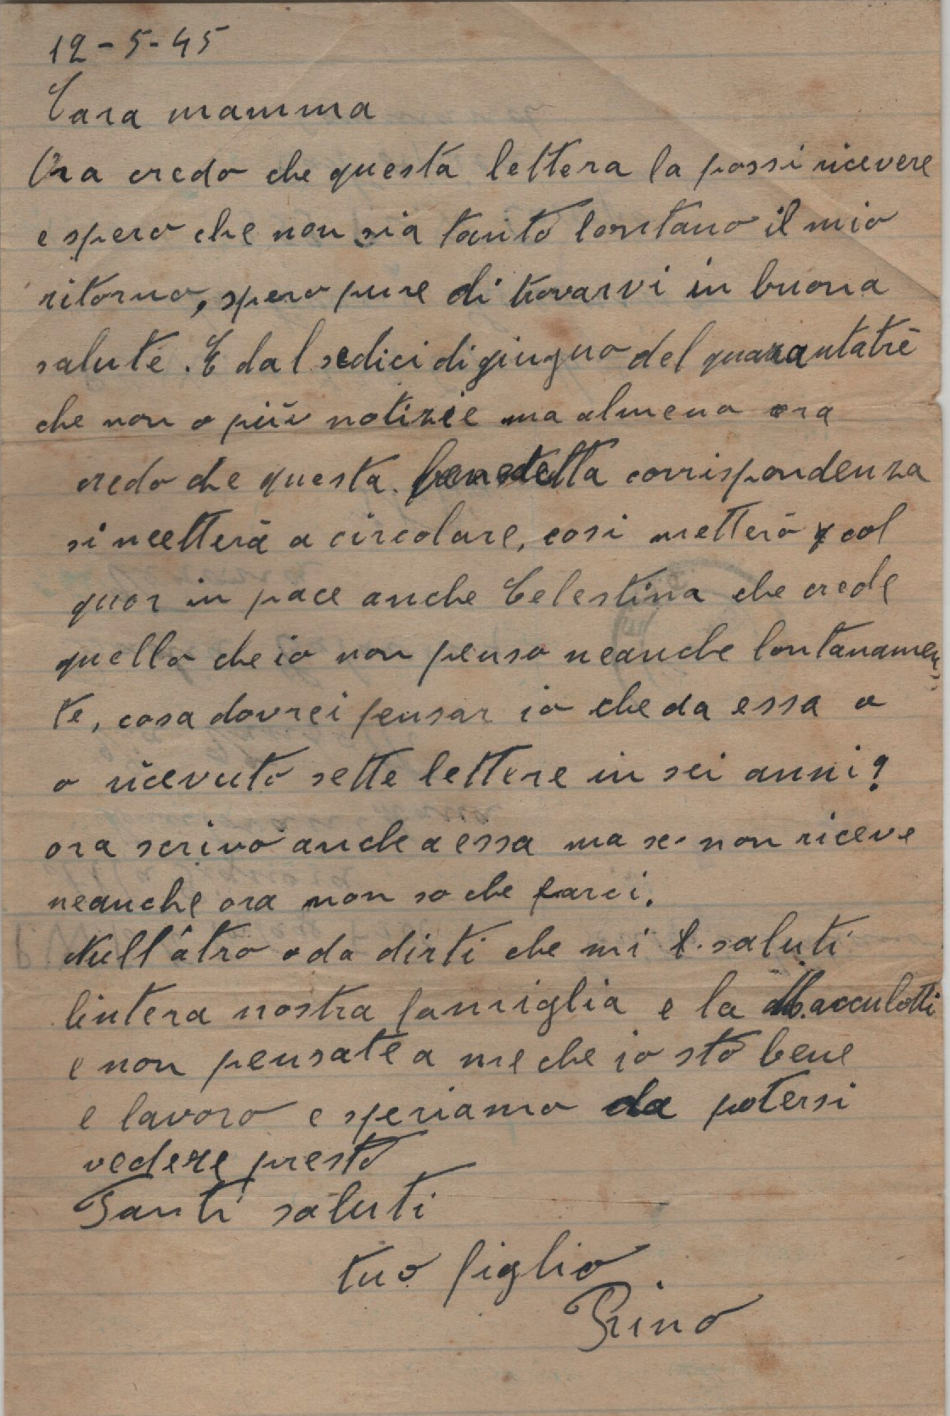 12-5-45
Cara mamma
Ora credo che questa lettera la possi ricevere
e spero che non sia tanto lontano il mio
ritorno, spero pure di trovarvi in buona
salute. E dal sedici di giugno del quarantatrè
che non o più notizie ma almeno ora
credo che questa benedetta corrispondenza
si metterà a circolare, così metterò col
quor in pace anche Celestina che crede
quello che io non penso neanche lontanamen
te, cosa dovrei pensar io che da essa o
o ricevuto sette lettere in sei anni?
ora scrivo anche a essa ma se non riceve
neanche ora non so che farci.
Null'âtro o da dirti che mi saluti
lintera nostra famiglia e la
e non pensate a me che io stò bene
e lavoro e speriamo da potersi
vedere presto
Tanti saluti
tuo figlio
Prino